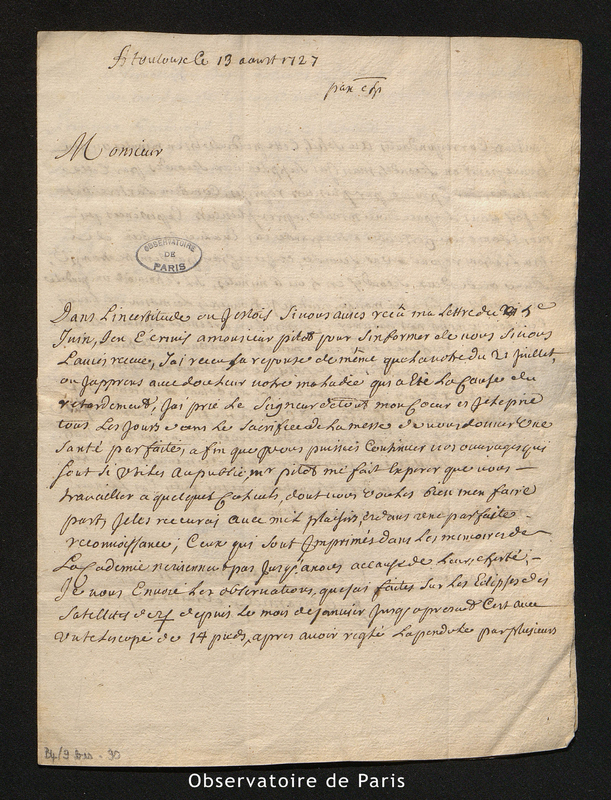 A toulouse le 13 aoust 1727
Monsieur
OBSERVATOIRE
DE
PARIS
Dans l'incertitude ou J'estois si vous avies receu ma lettre du 5e
Juin, J'en écrivis a monsieur pitot pour s'informer de vous si vous
l'avies receue, J'ai receu sa reponse de même que la votre du 21 Juillet,
ou J'apprens avec douleur votre maladie qui a été la cause du
retardement, J'ai prié le Seigneur de tout mon Coeur et Je le prie
tous les Jours dans le Sacrifice de la messe de vous donner une
Santé parfaite, afin que vous puissies Continuer vos ouvrages qui
sont si utiles au public, mr pitot me fait Esperer que vous
travaillier a quelques Calculs, dont vous voules bien men faire
part, Je les recevrai avec mil plaisirs, et dans une parfaite
reconnoissance; Ceux qui sont Imprimés dans les memoires de
La Cademie ne viennent pas Jusqu'a nous a cause de leur cherté;
Je vous Envoie les observations que J'ai faites sur les Eclipses des
Satellites de ♃ depuis le mois de Janvier Jusqu'a present C'est avec
un telescope de 14 pieds, apres avoir reglé la pendule par plusieurs
B4/9 bis - 90
Observatoire de Paris